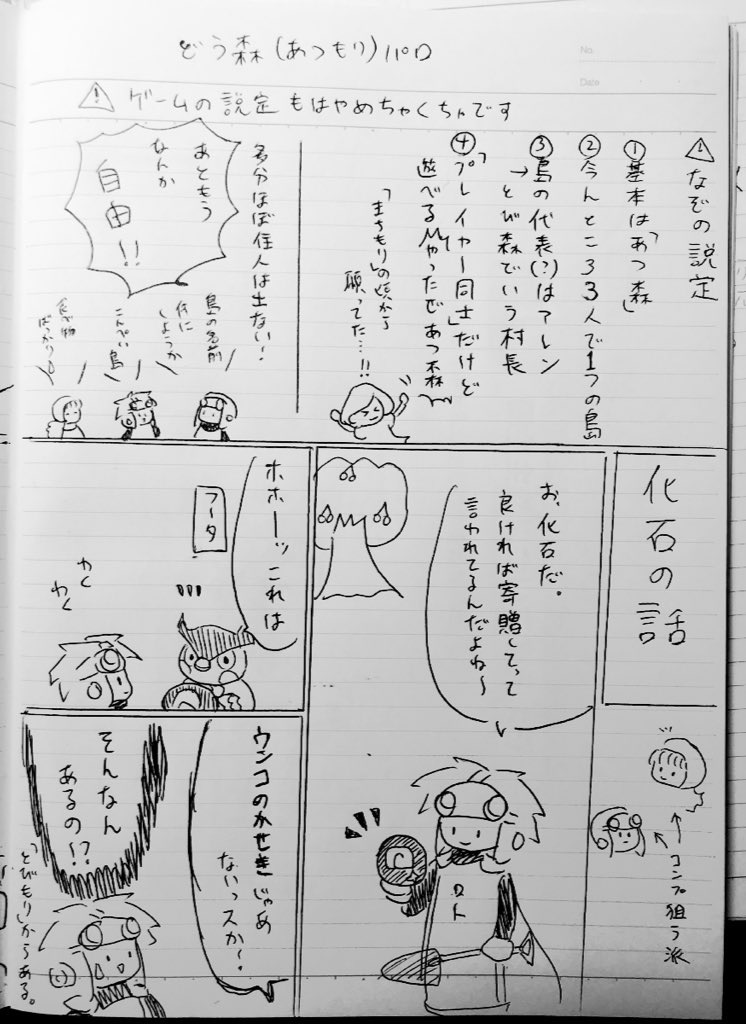 どう森(あつもり)パロ
No.
Date
⚠ ゲームの設定もはやめちゃくちゃです
⚠なぞの設定
①基本は「あつ森」
②今んところ3人で1つの島
③島の代表(?)はアレン
→とび森でいう村長
④「プレイヤー同士」だけど
遊べるMyったぜあつ森
「まちもり」の頃から
願ってた…!!
多分ほぼ住人は出ない!
あともう
なんか
自由!!
島の名前
何に
しようか
こんぺい島
食べ物
ばっかり
化石の話
コンプ狙う派
お、化石だ。
良ければ寄贈してって
言われてるんだよね〜
ロト
ホホーッこれは
フータ
わく
わく
ウンコのかせきじゃぁ
ないっスか〜。
そんなん
あるの!?
「とびもり」からある。